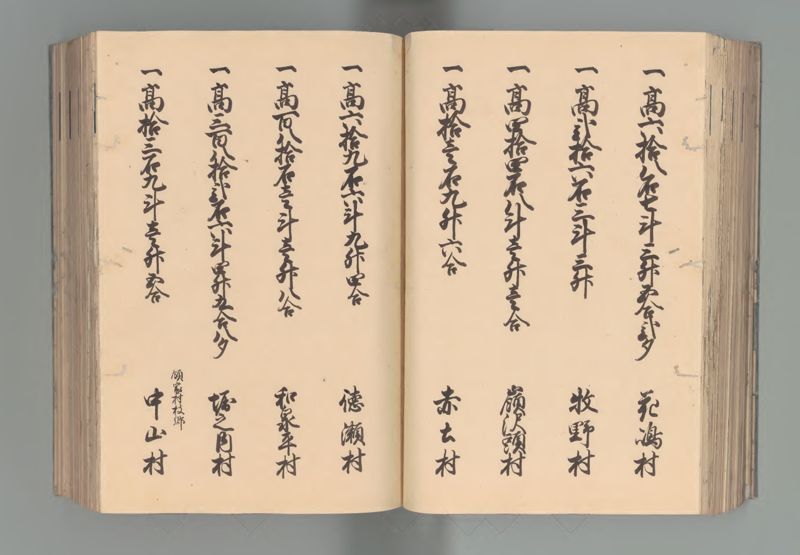 一高六拾八石七斗三升五合弐夕 花嶋村
一高弐拾六石三斗三升 牧野村
一高四拾四石八斗壱升壱合 村
一高拾壱石九升六合 赤土村
一高六拾九石六斗九升四合 徳瀬村
一高百八拾石壱斗壱升八合 和泉平村
一高三百八拾弐石六斗四升五合八夕 堀之内村
一高拾三石九斗壱升五合 領家村枝郷 中山村